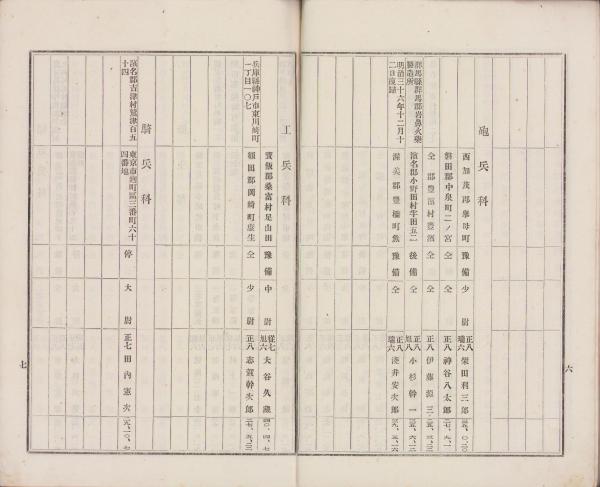 砲兵科
西加茂郡擧母町 豫備 少尉 正八瑞六 柴田利三郎
磐田郡中泉町二ノ宮 仝 仝 正八 神谷八太郎
仝郡豊田村豊濱 仝 仝 正八 伊藤源三
濱名郡小野田村字田五二 後備 仝 正八旭六 小杉幹一
群馬縣群馬郡岩鼻火藥製造所
明治三十六年十二月十二日復歸
渥美郡豊橋町 豫備 仝 正八瑞六 淺井安次郎
六
工兵科
寳飯郡桑富村足山田 豫備 中尉 從七旭六 大谷久藏
兵庫縣神戸市東川崎町一丁目一〇七
額田郡岡崎町康生 仝 少尉 正八 志賀幹次郎
騎兵科
濱名郡吉津村鷲津百五十四
東京市麹町區三番町六十四番地 停 大尉 正七 田内憲次
七